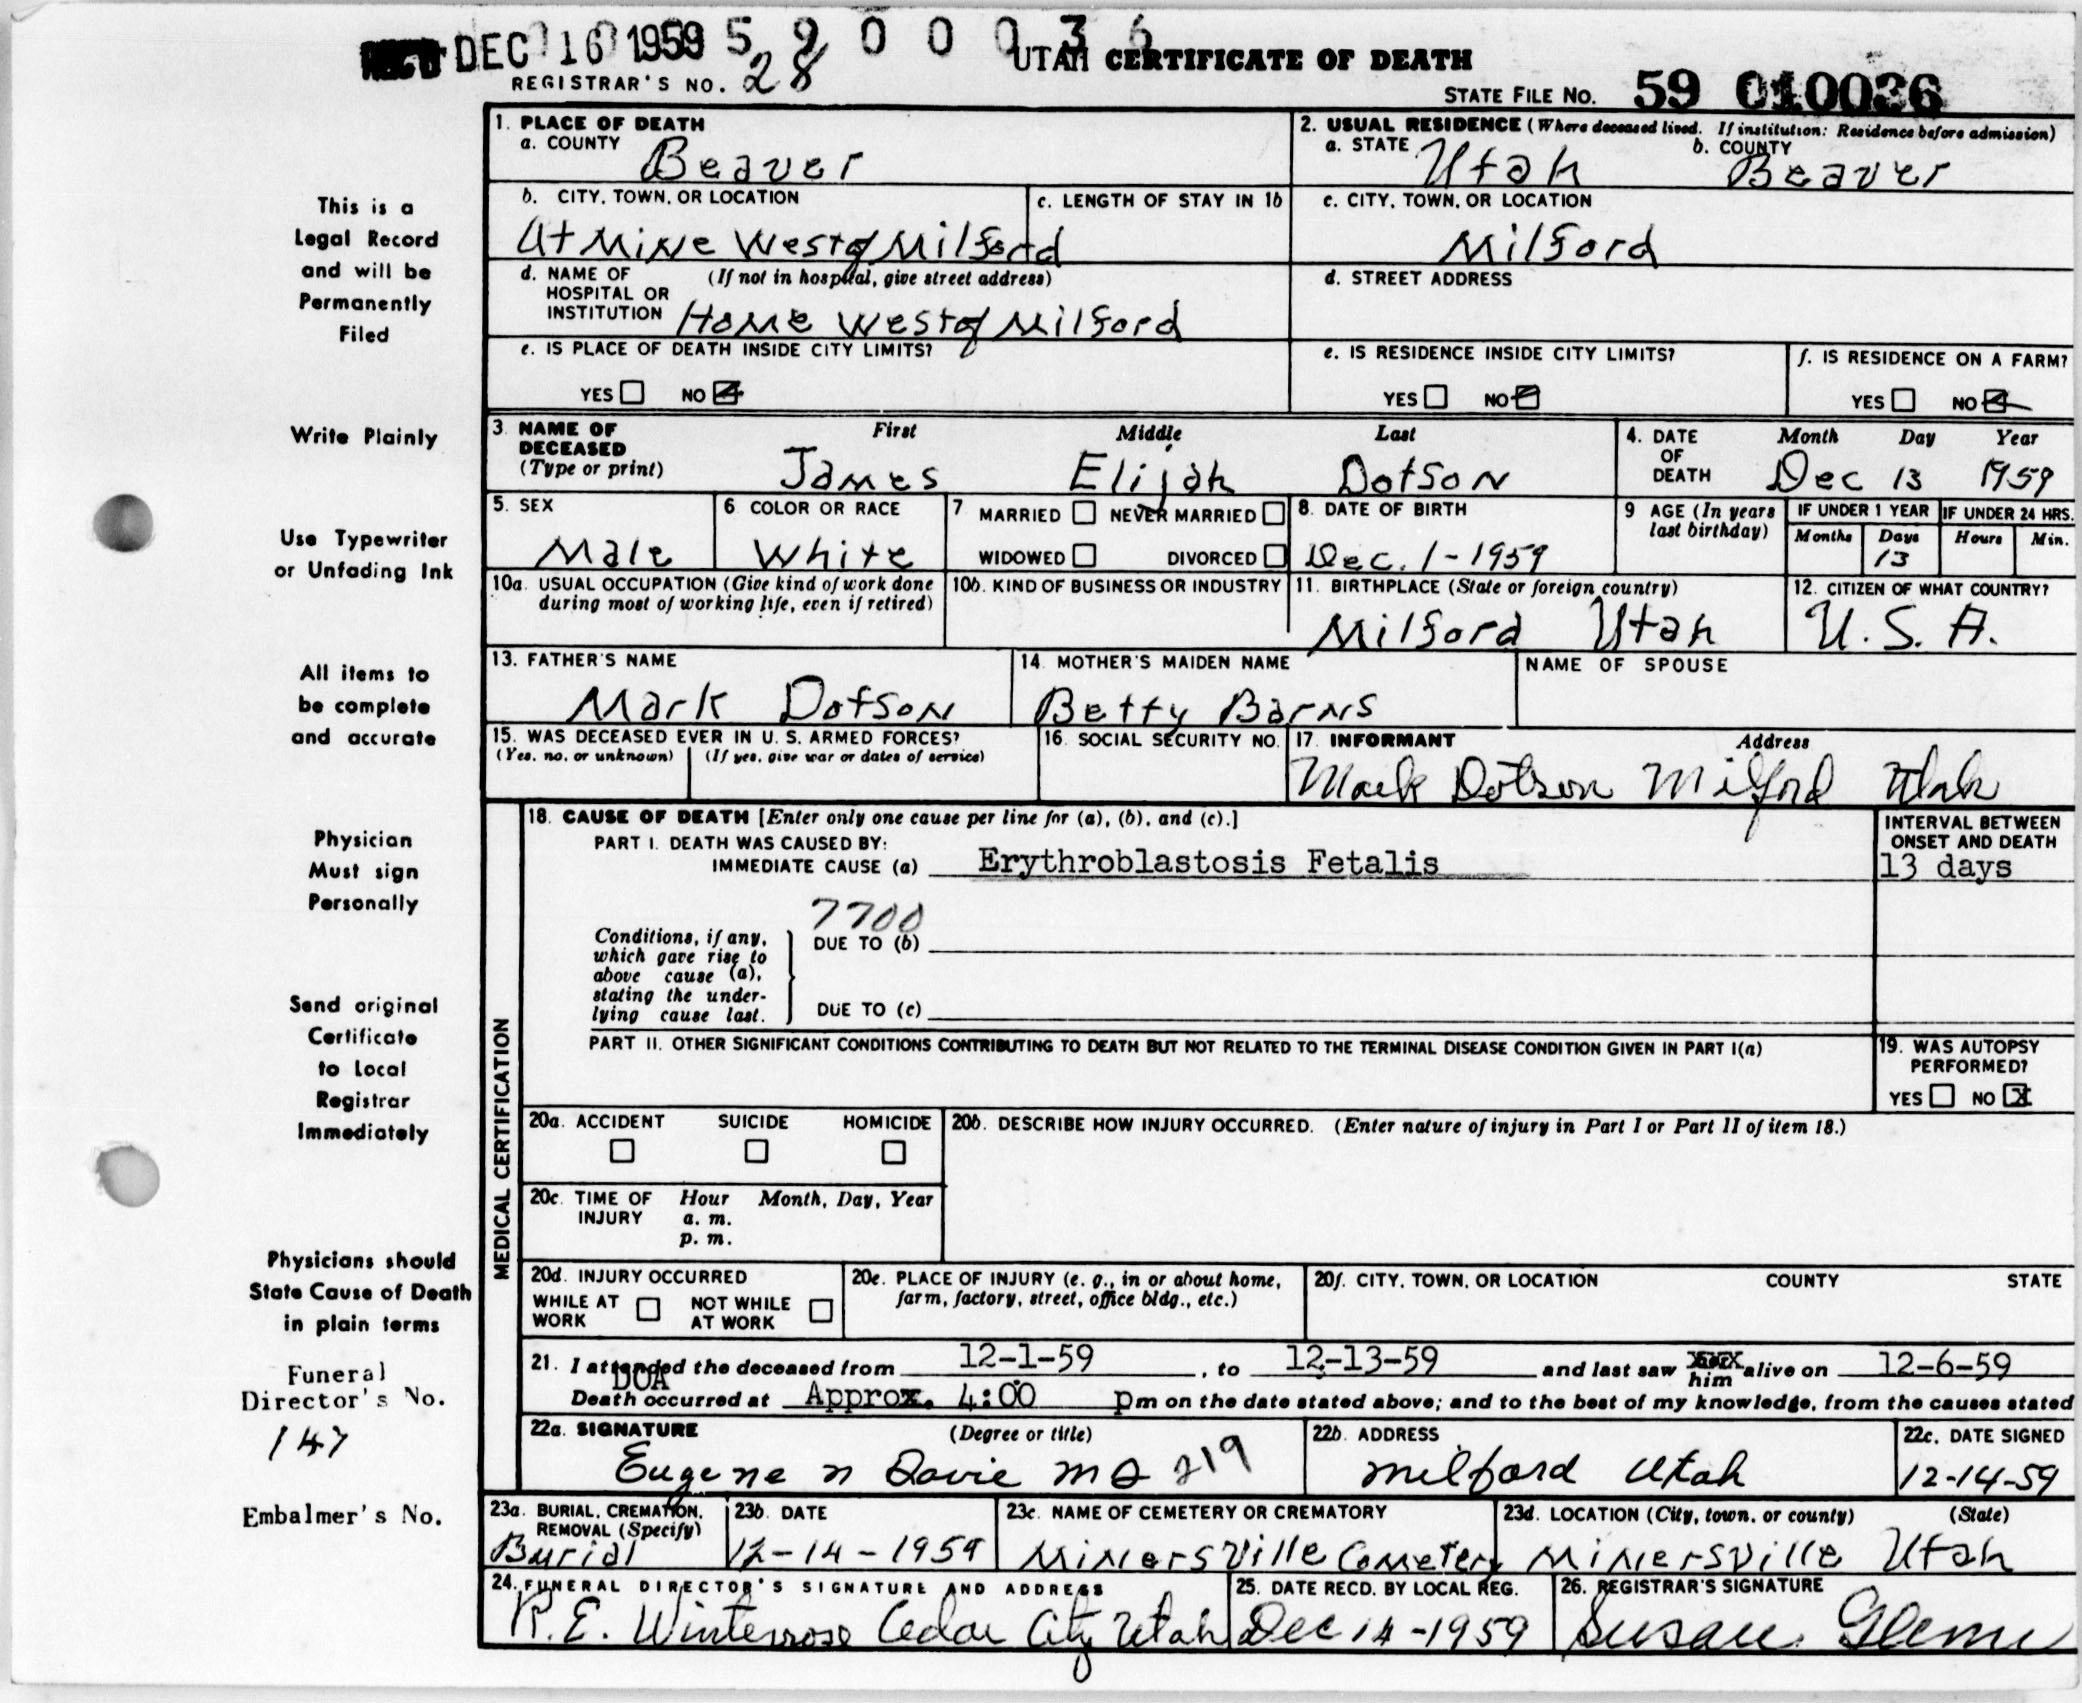 REC'D DEC 16 1959 5 9 0 0 0 3 6
UTAH CERTIFICATE OF DEATH
REGISTRAR'S NO. 28
STATE FILE NO. 59 010036
This is a
Legal Record
and will be
Permanently
Filed
Write Plainly
Use Typewriter
or Unfading Ink
All items to
be complete
and accurate
Physician
Must sign
Personally
Send original
Certificate
to Local
Registrar
Immediately
Physicians should
State Cause of Death
in plain terms
Funeral
Director's No.
147
Embalmer's No.
1. PLACE OF DEATH
a. COUNTY Beaver
2. USUAL RESIDENCE (Where deceased lived. If institution: Residence before admission)
a. STATE Utah b. COUNTY Beaver
b. CITY, TOWN, OR LOCATION
At Mine West of Milford
c. LENGTH OF STAY IN 1b
c. CITY, TOWN, OR LOCATION
Milford
d. NAME OF (If not in hospital, give street address)
HOSPITAL OR
INSTITUTION Home West of Milford
d. STREET ADDRESS
e. IS PLACE OF DEATH INSIDE CITY LIMITS?
YES NO
e. IS RESIDENCE INSIDE CITY LIMITS?
YES NO
f. IS RESIDENCE ON A FARM?
YES NO
3. NAME OF First Middle Last
DECEASED
(Type or print) James Elijah Dotson
4. DATE Month Day Year
OF
DEATH Dec 13 1959
5. SEX
Male
6. COLOR OR RACE
White
7 MARRIED NEVER MARRIED
WIDOWED DIVORCED
8. DATE OF BIRTH
Dec. 1-1959
9 AGE (In years
last birthday)
IF UNDER 1 YEAR
Months Days
13
IF UNDER 24 HRS.
Hours Min.
10a. USUAL OCCUPATION (Give kind of work done
during most of working life, even if retired)
10b. KIND OF BUSINESS OR INDUSTRY
11. BIRTHPLACE (State or foreign country)
Milford Utah
12. CITIZEN OF WHAT COUNTRY?
U. S. A.
13. FATHER'S NAME
Mark Dotson
14. MOTHER'S MAIDEN NAME
Betty Barns
NAME OF SPOUSE
15. WAS DECEASED EVER IN U. S. ARMED FORCES?
(Yes, no, or unknown) (If yes, give war or dates of service)
16. SOCIAL SECURITY NO.
17. INFORMANT Address
Mark Dotson Milford Utah
MEDICAL CERTIFICATION
18. CAUSE OF DEATH [Enter only one cause per line for (a), (b), and (c).]
PART I. DEATH WAS CAUSED BY:
IMMEDIATE CAUSE (a) Erythroblastosis Fetalis
INTERVAL BETWEEN
ONSET AND DEATH
13 days
7700
Conditions, if any,
which gave rise to
above cause (a),
stating the under-
lying cause last.
DUE TO (b)
DUE TO (c)
PART II. OTHER SIGNIFICANT CONDITIONS CONTRIBUTING TO DEATH BUT NOT RELATED TO THE TERMINAL DISEASE CONDITION GIVEN IN PART I(a)
19. WAS AUTOPSY
PERFORMED?
YES NO X
20a. ACCIDENT SUICIDE HOMICIDE
20b. DESCRIBE HOW INJURY OCCURRED. (Enter nature of injury in Part I or Part II of item 18.)
20c. TIME OF Hour Month, Day, Year
INJURY a. m.
p. m.
20d. INJURY OCCURRED
WHILE AT NOT WHILE
WORK AT WORK
20e. PLACE OF INJURY (e. g., in or about home,
farm, factory, street, office bldg., etc.)
20f. CITY, TOWN, OR LOCATION COUNTY STATE
21. I attended the deceased from 12-1-59, to 12-13-59 and last saw him alive on 12-6-59
DOA
Death occurred at Approx. 4:00 pm on the date stated above; and to the best of my knowledge, from the causes stated
22a. SIGNATURE (Degree or title)
Eugene n Davie MD 219
22b. ADDRESS
Milford Utah
22c. DATE SIGNED
12-14-59
23a. BURIAL, CREMATION,
REMOVAL (Specify)
Burial
23b. DATE
12-14-1959
23c. NAME OF CEMETERY OR CREMATORY
Minersville Cemetery
23d. LOCATION (City, town, or county) (State)
Minersville Utah
24. FUNERAL DIRECTOR'S SIGNATURE AND ADDRESS
R. E. Winterrose Cedar City Utah
25. DATE RECD. BY LOCAL REG.
Dec 14-1959
26. REGISTRAR'S SIGNATURE
Susan Glenn